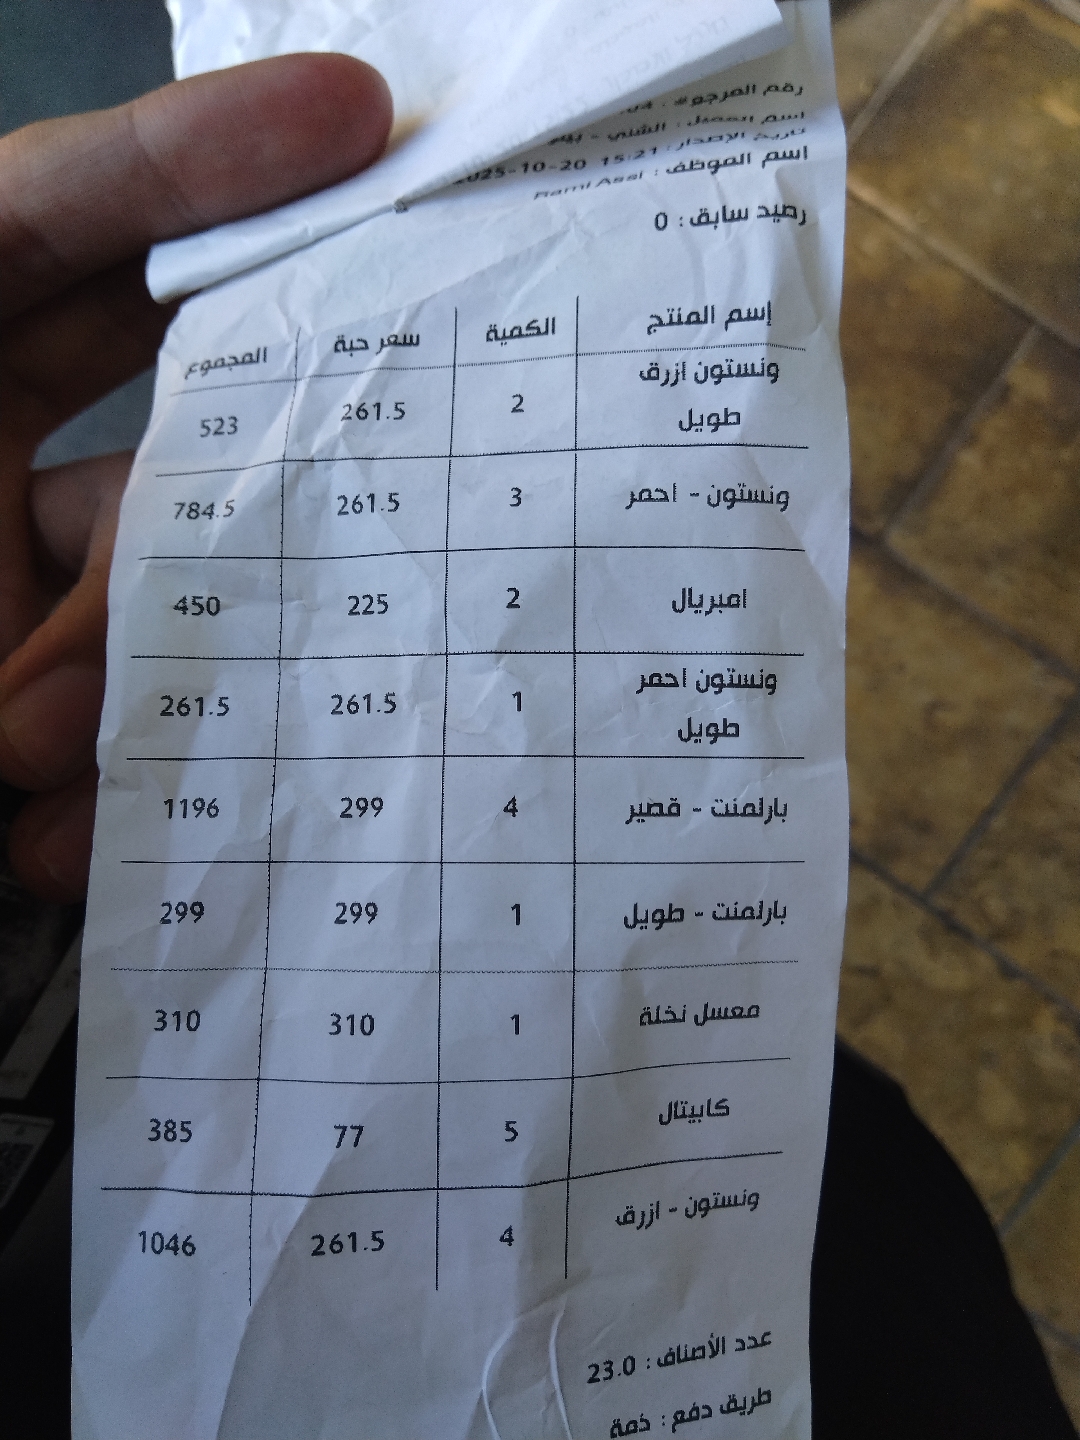 رقم المرجو# :
اسم العميل : الشني -
تاريخ الإصدار: 15:21 2025-10-20
اسم الموظف : Rami Assi
رصيد سابق: 0
إسم المنتج الكمية سعر حبة المجموع
ونستون ازرق
طويل 2 261.5 523
ونستون - احمر 3 261.5 784.5
امبريال 2 225 450
ونستون احمر
طويل 1 261.5 261.5
بارلمنت - قصير 4 299 1196
بارلمنت - طويل 1 299 299
معسل نخلة 1 310 310
كابيتال 5 77 385
ونستون - ازرق 4 261.5 1046
عدد الأصناف: 23.0
طريق دفع: ذمة